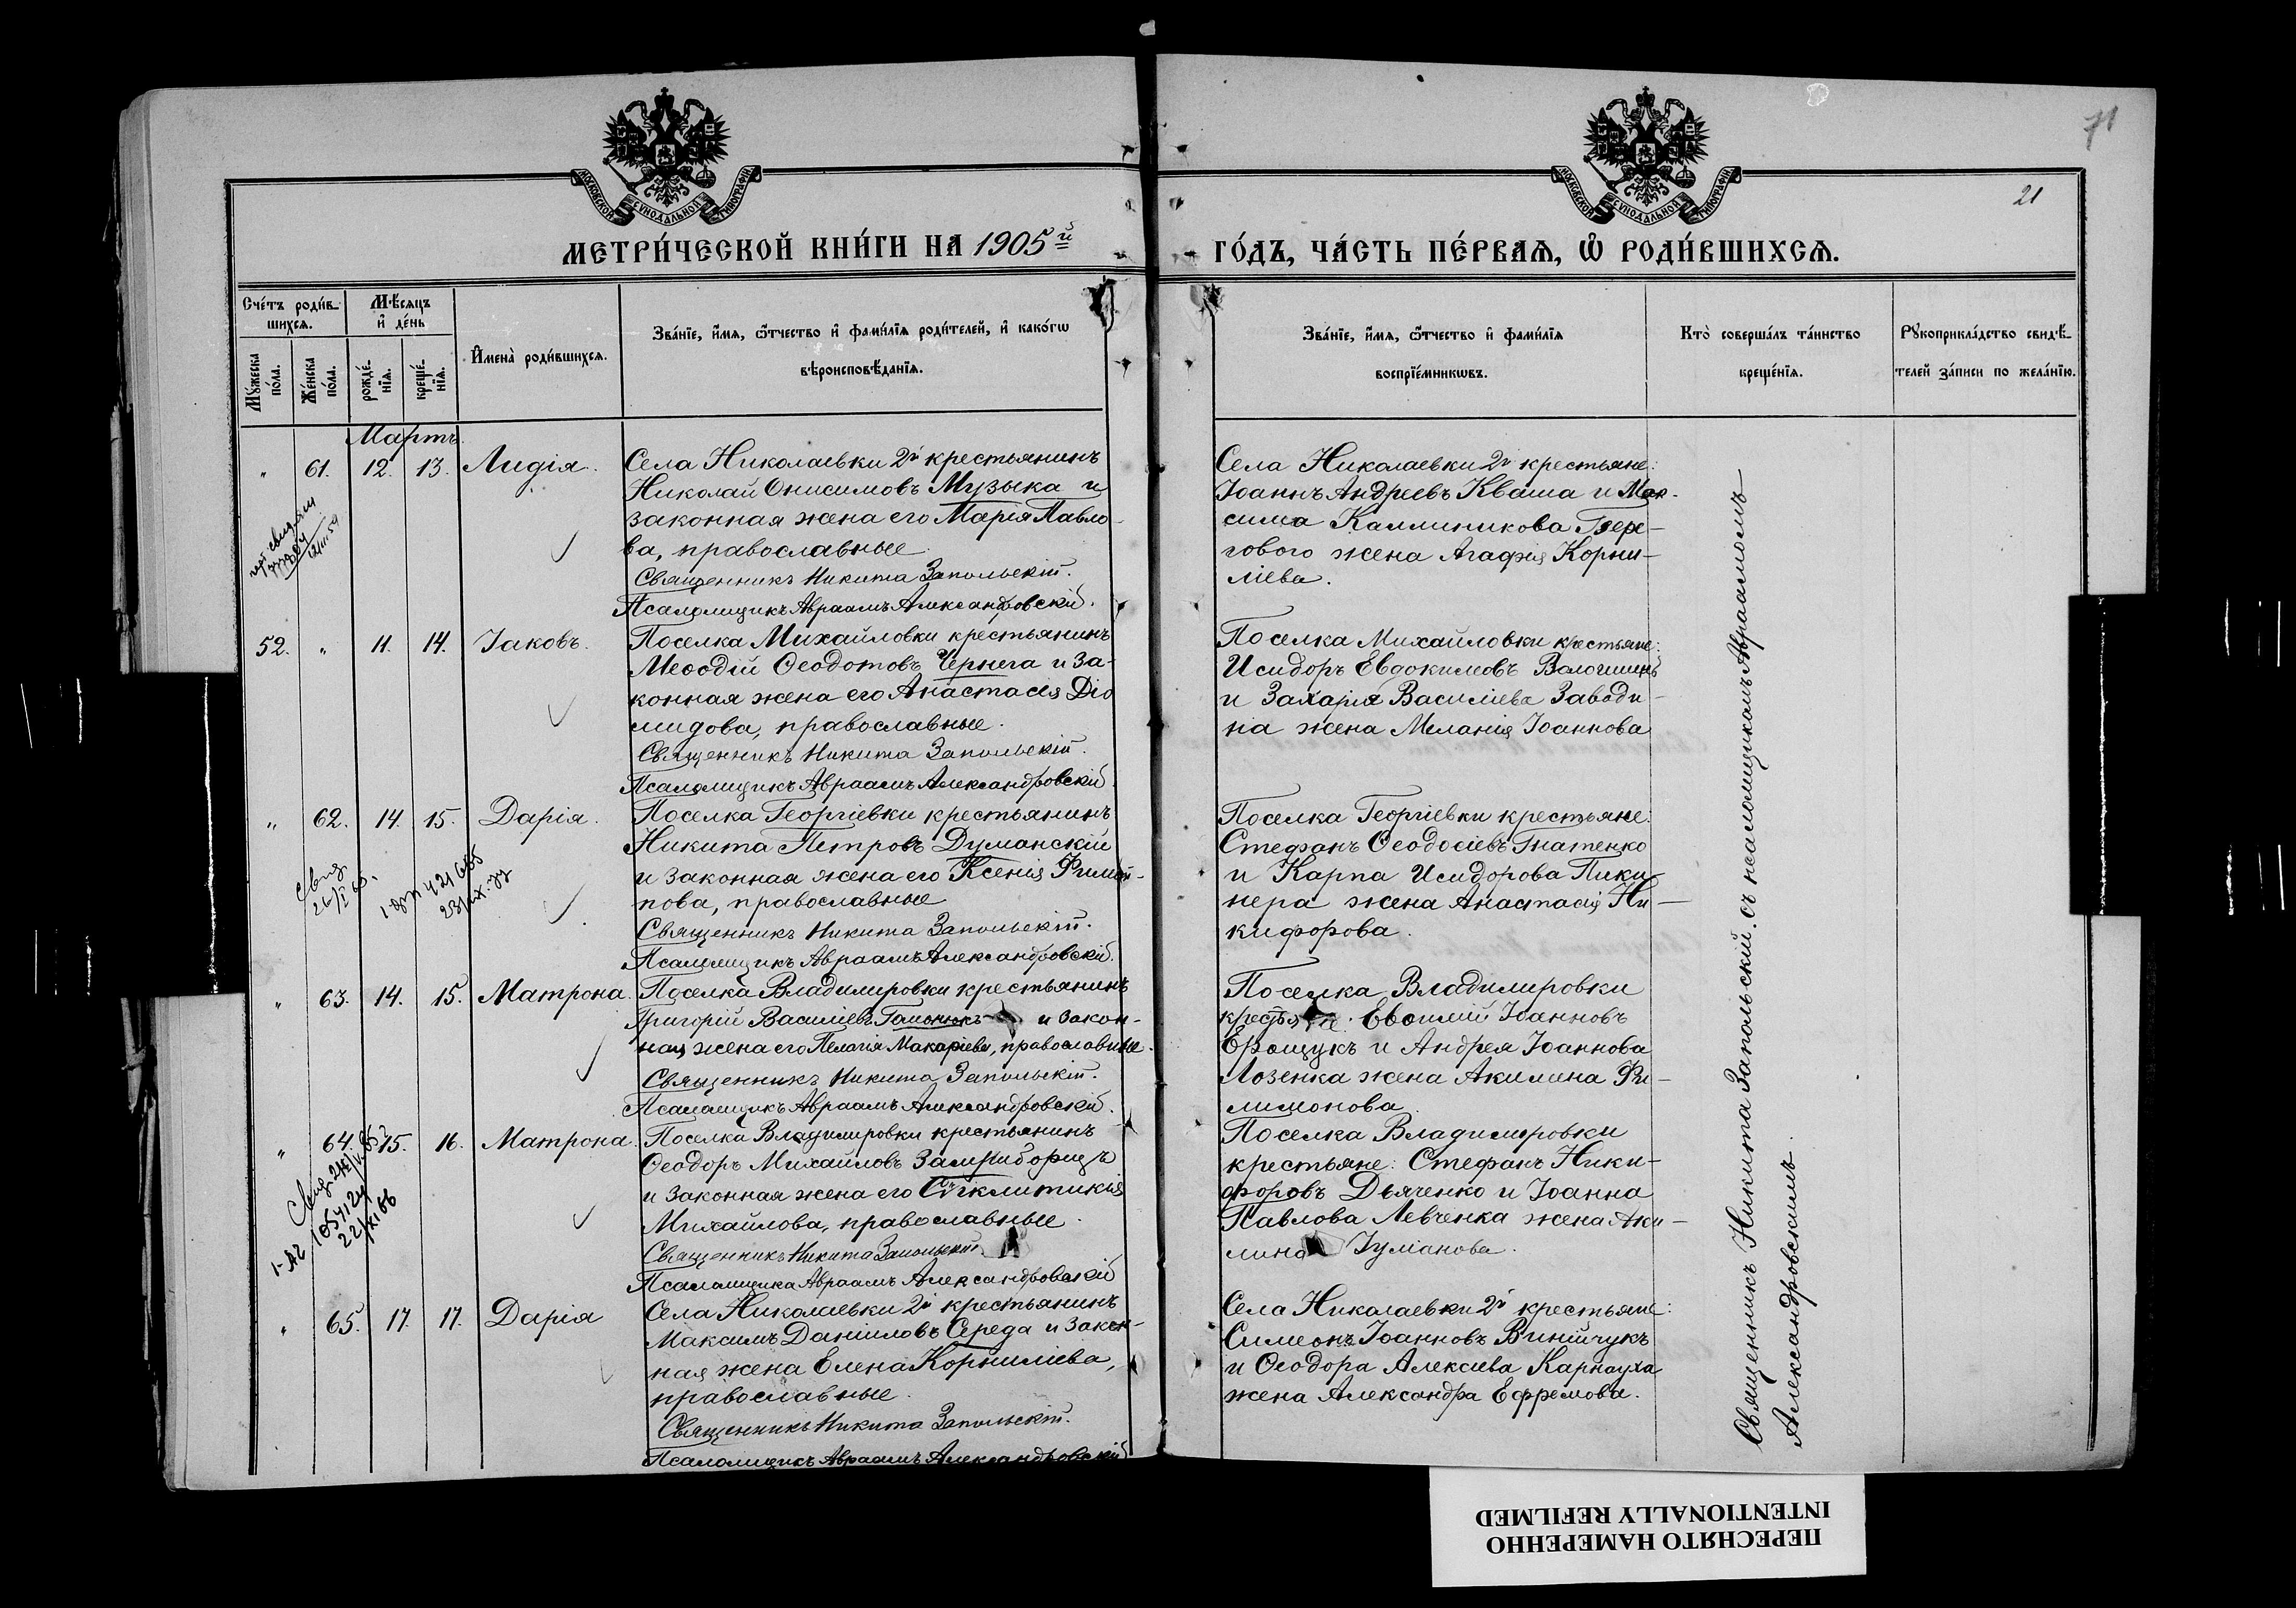 71
21
МОСКОВСКОЙ СУНОДАЛЬНОЙ ТИПОГРАФІИ
МОСКОВСКОЙ СУНОДАЛЬНОЙ ТИПОГРАФІИ
МЕТРИ́ЧЕСКОЙ КНИ́ГИ НА 1905й
ГО́ДЪ, ЧА́СТЬ ПЕ́РВАѦ, Ѡ҆ РОДИ́ВШИХСѦ.
Сче́тъ роди́в-
шихсѧ.
Мѣ́сѧцъ
и҆ де́нь
Мꙋ́жеска
по́ла.
Же́нска
по́ла.
рожде́-
нїѧ.
креще́-
нїѧ.
И҆мена̀ роди́вшихсѧ.
Зва́нїе, и҆́мѧ, ѻ҆́тчество и҆ фами́лїѧ роди́телей, и҆ како́гѡ
вѣроисповѣ́данїѧ.
Зва́нїе, и҆́мѧ, ѻ҆́тчество и҆ фами́лїѧ
воспрїе́мникѡвъ.
Кто̀ соверша́лъ та́инство
креще́нїѧ.
Рꙋкоприкла́дство свидѣ́-
телей за́писи по жела́нїю.
Мартъ.
" 61. 12. 13. Лидія.
Села Николаевки 2й крестьянинъ
Николай Онисимовъ Музыка и
законная жена его Марія Павло-
ва, православные
Священникъ Никита Запольскій.
Псаломщикъ Авраамъ Александровскій.
Села Николаевки 2й крестьяне:
Іоаннъ Андреевъ Кваша и Мак-
сима Каллиникова
жена Агафія Корни-
ліева.
52. " 11. 14. Іаковъ.
Поселка Михайловки крестьянинъ
Меѳодій Ѳеодотовъ Чернега и за-
конная жена его Анастасія Діо
мидова, православные.
Священникъ Никита Запольскій.
Псаломщикъ Авраамъ Александровскій.
Поселка Михайловки крестьяне:
Исидоръ Евдокимовъ
и Захарія Василіева Заводи-
на жена Меланія Іоаннова
" 62. 14. 15. Дарія.
Поселка Георгіевки крестьянинъ
Никита Петровъ Думанскій
и законная жена его Ксенія Филип-
пова, православные
Священникъ Никита Запольскій.
Псаломщикъ Авраамъ Александровскій.
Поселка Георгіевки крестьяне:
Стефанъ Ѳеодосіевъ Гнатенко
и Карпа Исидорова Пики-
нера жена Анастасія Ни-
кифорова.
" 63. 14. 15. Матрона.
Поселка Владимировки крестьянинъ
Григорій Василіевъ и закон-
ная жена его Пелагія Макаріева, православные.
Священникъ Никита Запольскій.
Псаломщикъ Авраамъ Александровскій.
Поселка Владимировки
крестьяне: Евѳимій Іоанновъ
Ерощукъ и Андрея Іоаннова
Лозенка жена Акилина Фи-
лимонова.
" 64. 15. 16. Матрона.
Поселка Владимировки крестьянинъ
Ѳеодоръ Михайловъ Замриборщъ
и законная жена его Сѵгклитикія
Михайлова, православные.
Священникъ Никита Запольскій.
Псаломщика Авраамъ Александровскій
Поселка Владимировки
крестьяне: Стефанъ Ники-
форовъ Дьяченко и Іоанна
Павлова Левченка жена Аки-
лина Іуліанова.
" 65. 17. 17. Дарія
Села Николаевки 2й крестьянинъ
Максимъ Даніиловъ Середа и закон-
ная жена Елена Корниліева,
православные.
Священникъ Никита Запольскій.
Псаломщикъ Авраамъ Александровскій
Села Николаевки 2й крестьяне:
Симеонъ Іоанновъ Винійчукъ
и Ѳеодора Алексіева Карнауха
жена Александра Ефремова.
Священникъ Никита Запольскій съ псаломщикомъ Авраамомъ
Александровскимъ.
ПЕРЕСНЯТО НАМЕРЕННО
INTENTIONALLY REFILMED